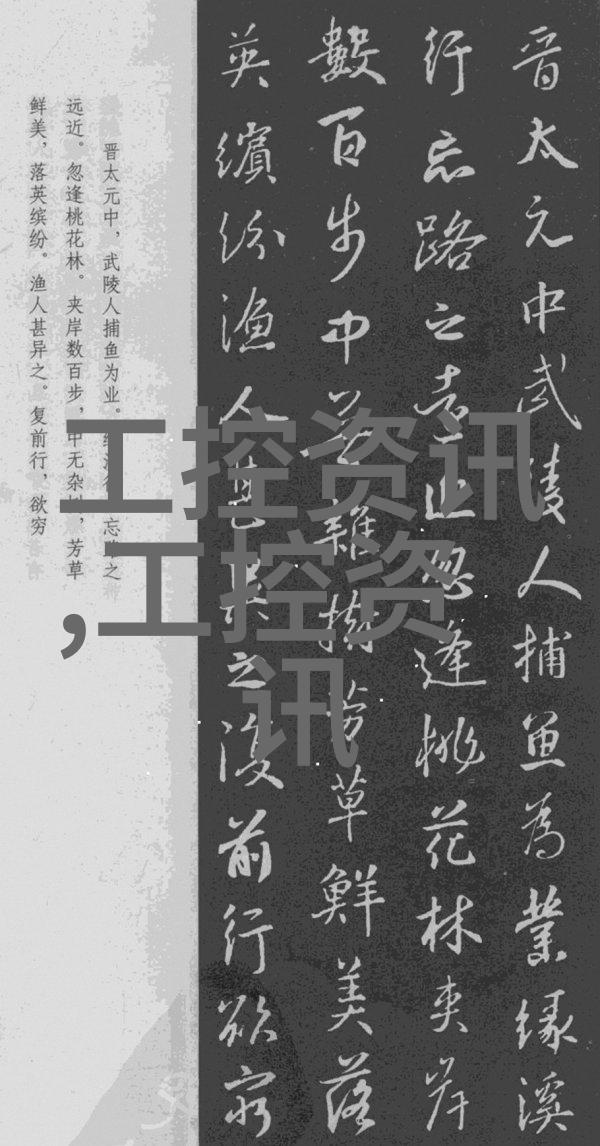 晋太元中武陵人捕魚為業緣溪
行忘路之遠近忽逢桃花林夾岸
數百步中無雜樹芳草鮮美落
英繽紛漁人甚異之復前行欲窮
晋太元中，武陵人捕鱼为业。缘溪行，忘路之
远近。忽逢桃花林。夹岸数百步，中无杂树，芳草
鲜美，落英缤纷。渔人甚异之。复前行，欲穷
工控资讯
,工控资
讯